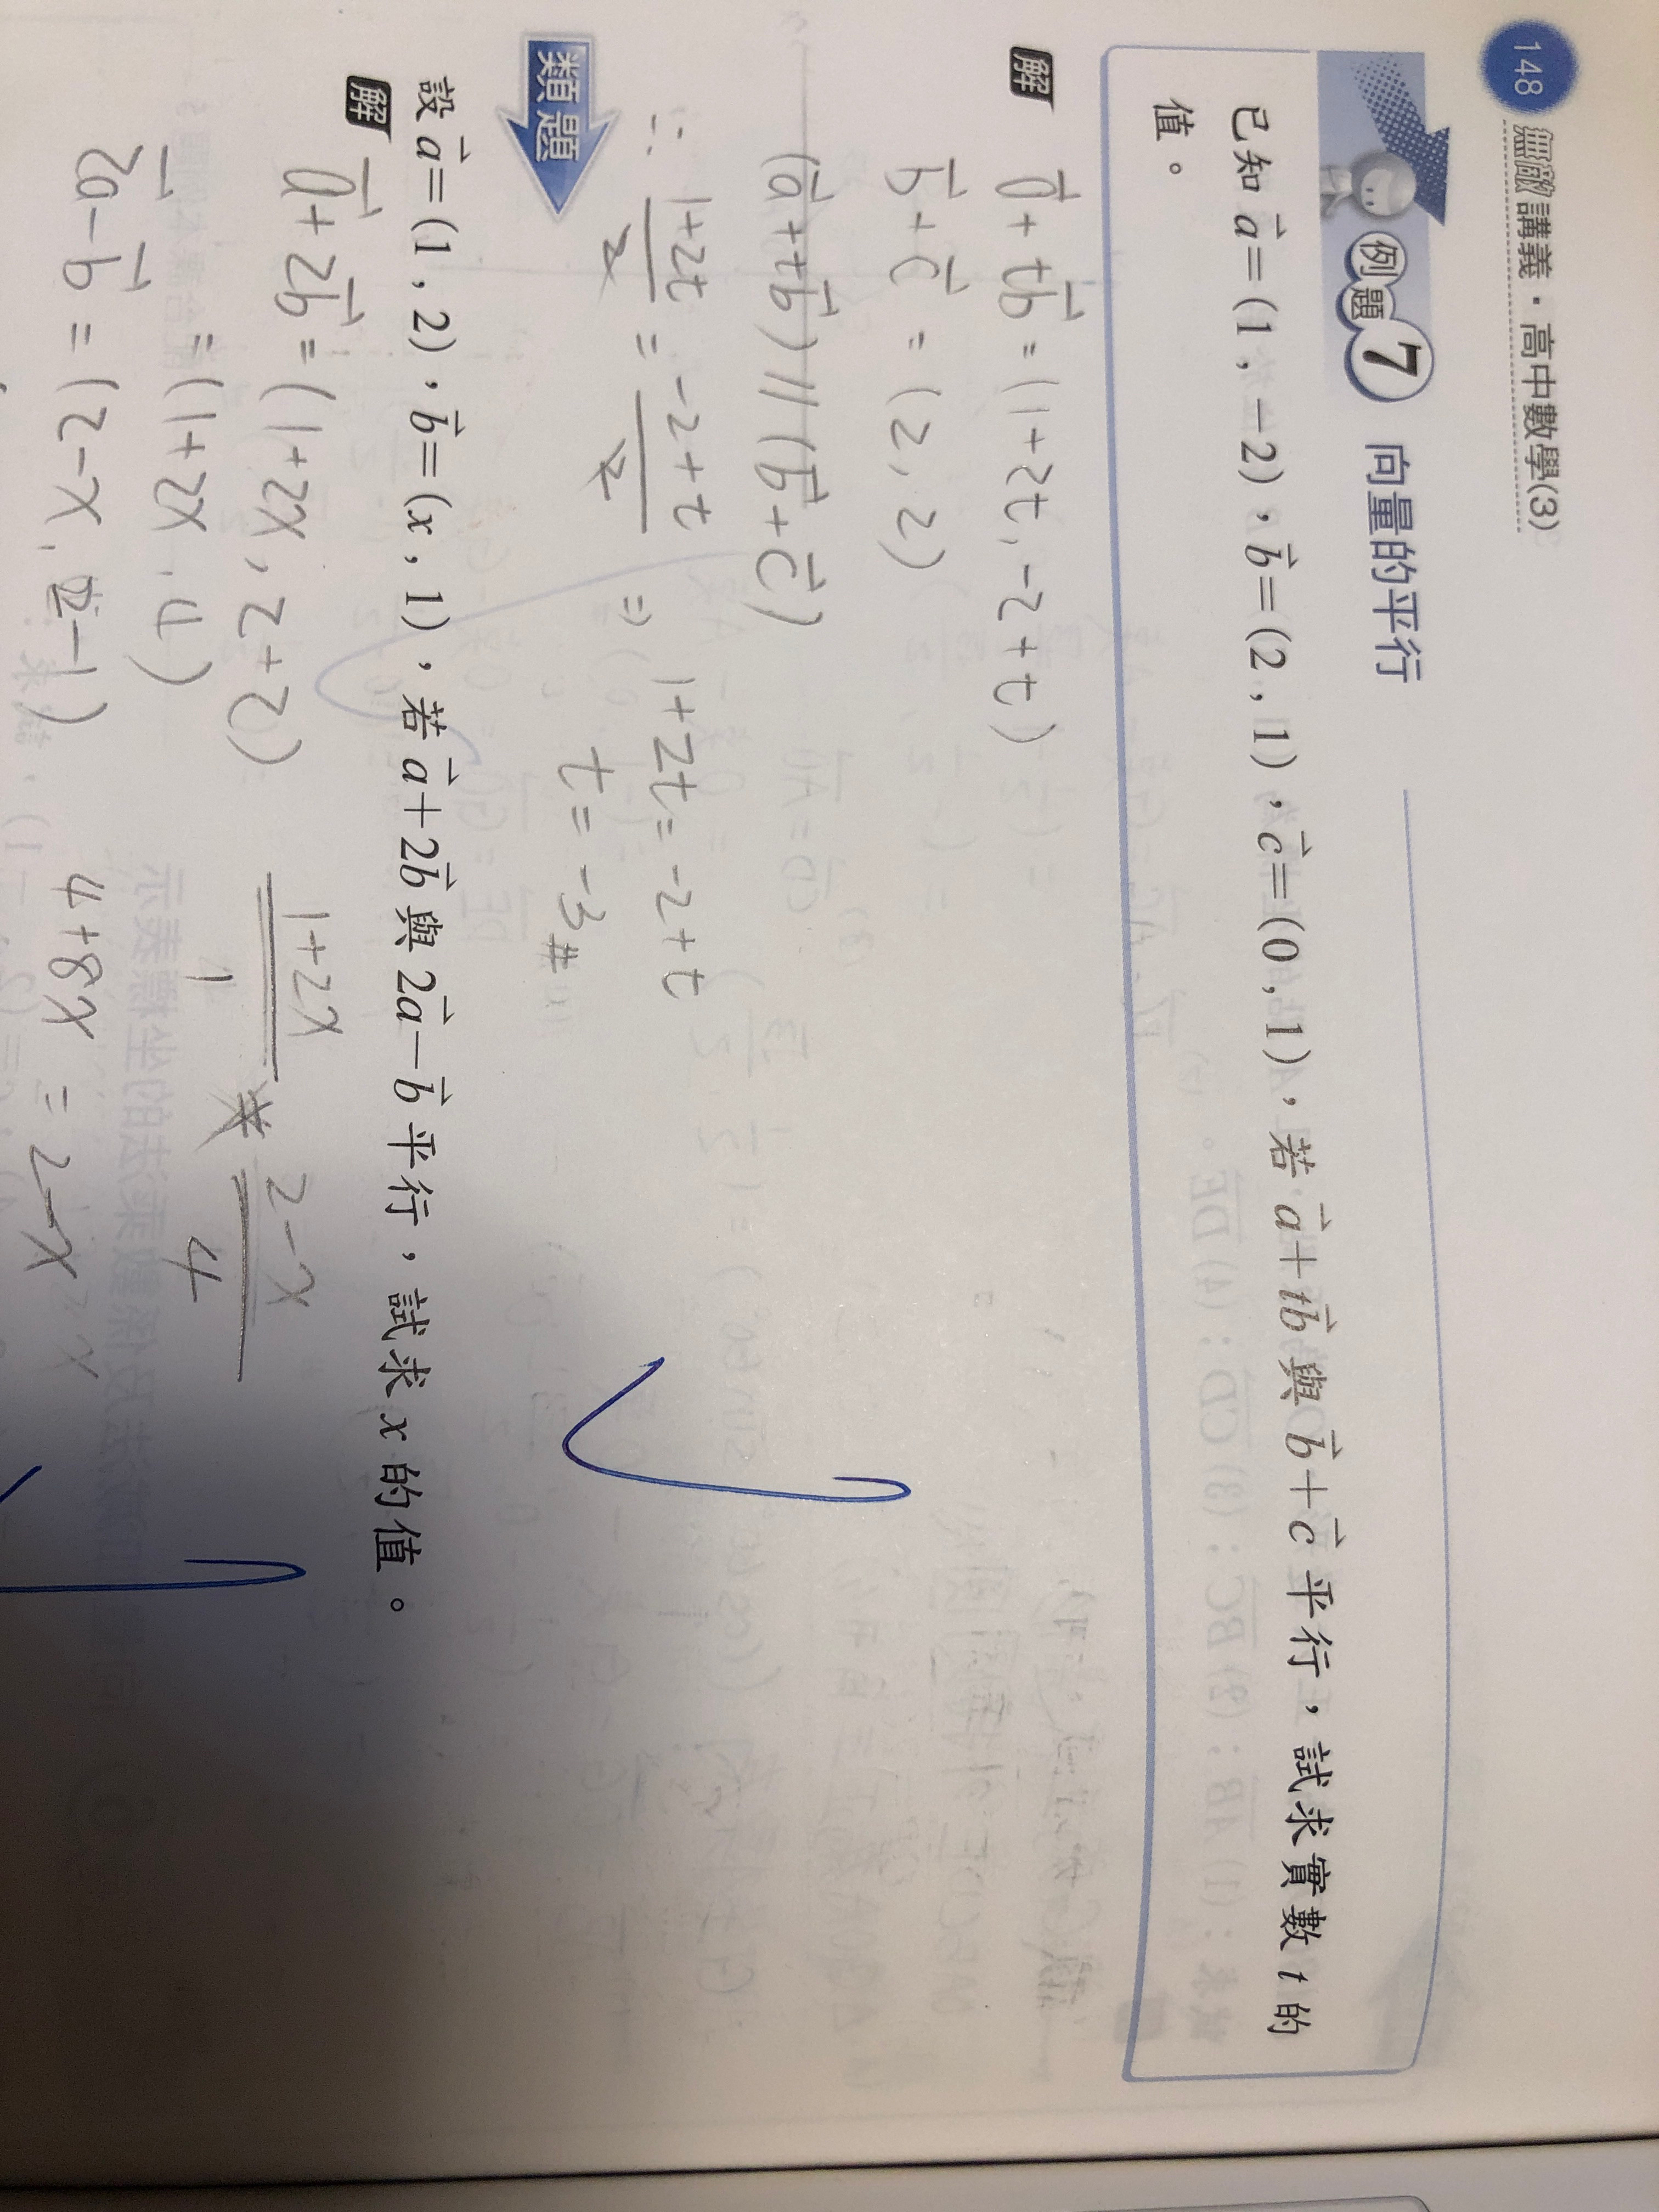 148 無敵講義・高中數學(3)
例題7 向量的平行
已知 a⃗=(1,−2),b⃗=(2,1),c⃗=(0,1),若 a⃗+tb⃗ 與 b⃗+c⃗ 平行,試求實數 t 的
值。
解
a⃗+tb⃗=(1+2t,-2+t)
b⃗+c⃗=(2,2)
(a⃗+tb⃗)//(b⃗+c⃗)
∴ (1+2t)/2 = (-2+t)/2 ⇒ 1+2t=-2+t
t=-3#
類題
設 a⃗=(1,2),b⃗=(x,1),若 a⃗+2b⃗ 與 2a⃗−b⃗ 平行,試求 x 的值。
解
a⃗+2b⃗=(1+2x,2+2)
=(1+2x,4)
2a⃗-b⃗=(2-x,
1+2x
1
2-x
4
4+8x=2-x